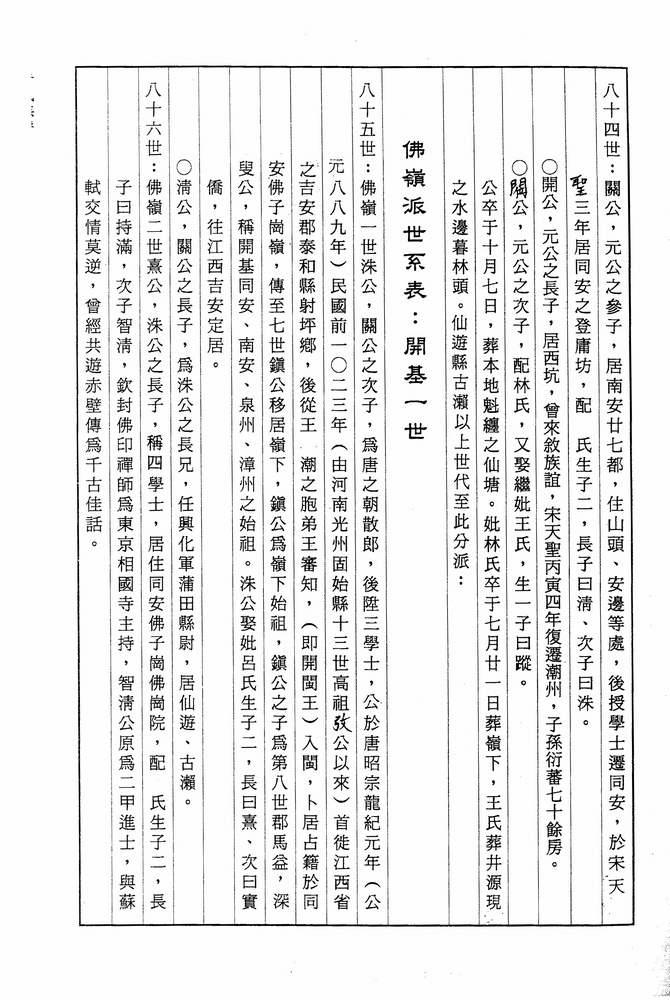 八十四世：關公，元公之參子，居南安廿七都，住山頭、安邊等處，後授學士遷同安，於宋天
聖三年居同安之登庸坊，配　氏生子二，長子曰清、次子曰洙。
○開公，元公之長子，居西坑，曾來敘族誼，宋天聖丙寅四年復遷潮州，子孫衍蕃七十餘房。
○閣公，元公之次子，配林氏，又娶繼妣王氏，生一子曰蹤。
公卒于十月七日，葬本地魁纏之仙塘。妣林氏卒于七月廿一日葬嶺下，王氏葬井源現
之水邊暮林頭。仙遊縣古瀨以上世代至此分派：
佛嶺派世系表：開基一世
八十五世：佛嶺一世洙公，關公之次子，爲唐之朝散郎，後陞三學士，公於唐昭宗龍紀元年（公
元八八九年）民國前一〇二三年（由河南光州固始縣十三世高祖攷公以來）首徙江西省
之吉安郡泰和縣射坪鄉，後從王　潮之胞弟王審知，（即開閩王）入閩，卜居占籍於同
安佛子崗嶺，傳至七世鎭公移居嶺下，鎭公爲嶺下始祖，鎭公之子爲第八世郡馬益，深
叟公，稱開基同安、南安、泉州、漳州之始祖。洙公娶妣呂氏生子二，長曰熹、次曰實
僑，往江西吉安定居。
○清公，關公之長子，爲洙公之長兄，任興化軍蒲田縣尉，居仙遊、古瀨。
八十六世：佛嶺二世熹公，洙公之長子，稱四學士，居住同安佛子崗佛崗院，配　氏生子二，長
子曰持滿，次子智清，欽封佛印禪師爲東京相國寺主持，智清公原爲二甲進士，與蘇
軾交情莫逆，曾經共遊赤壁傳爲千古佳話。